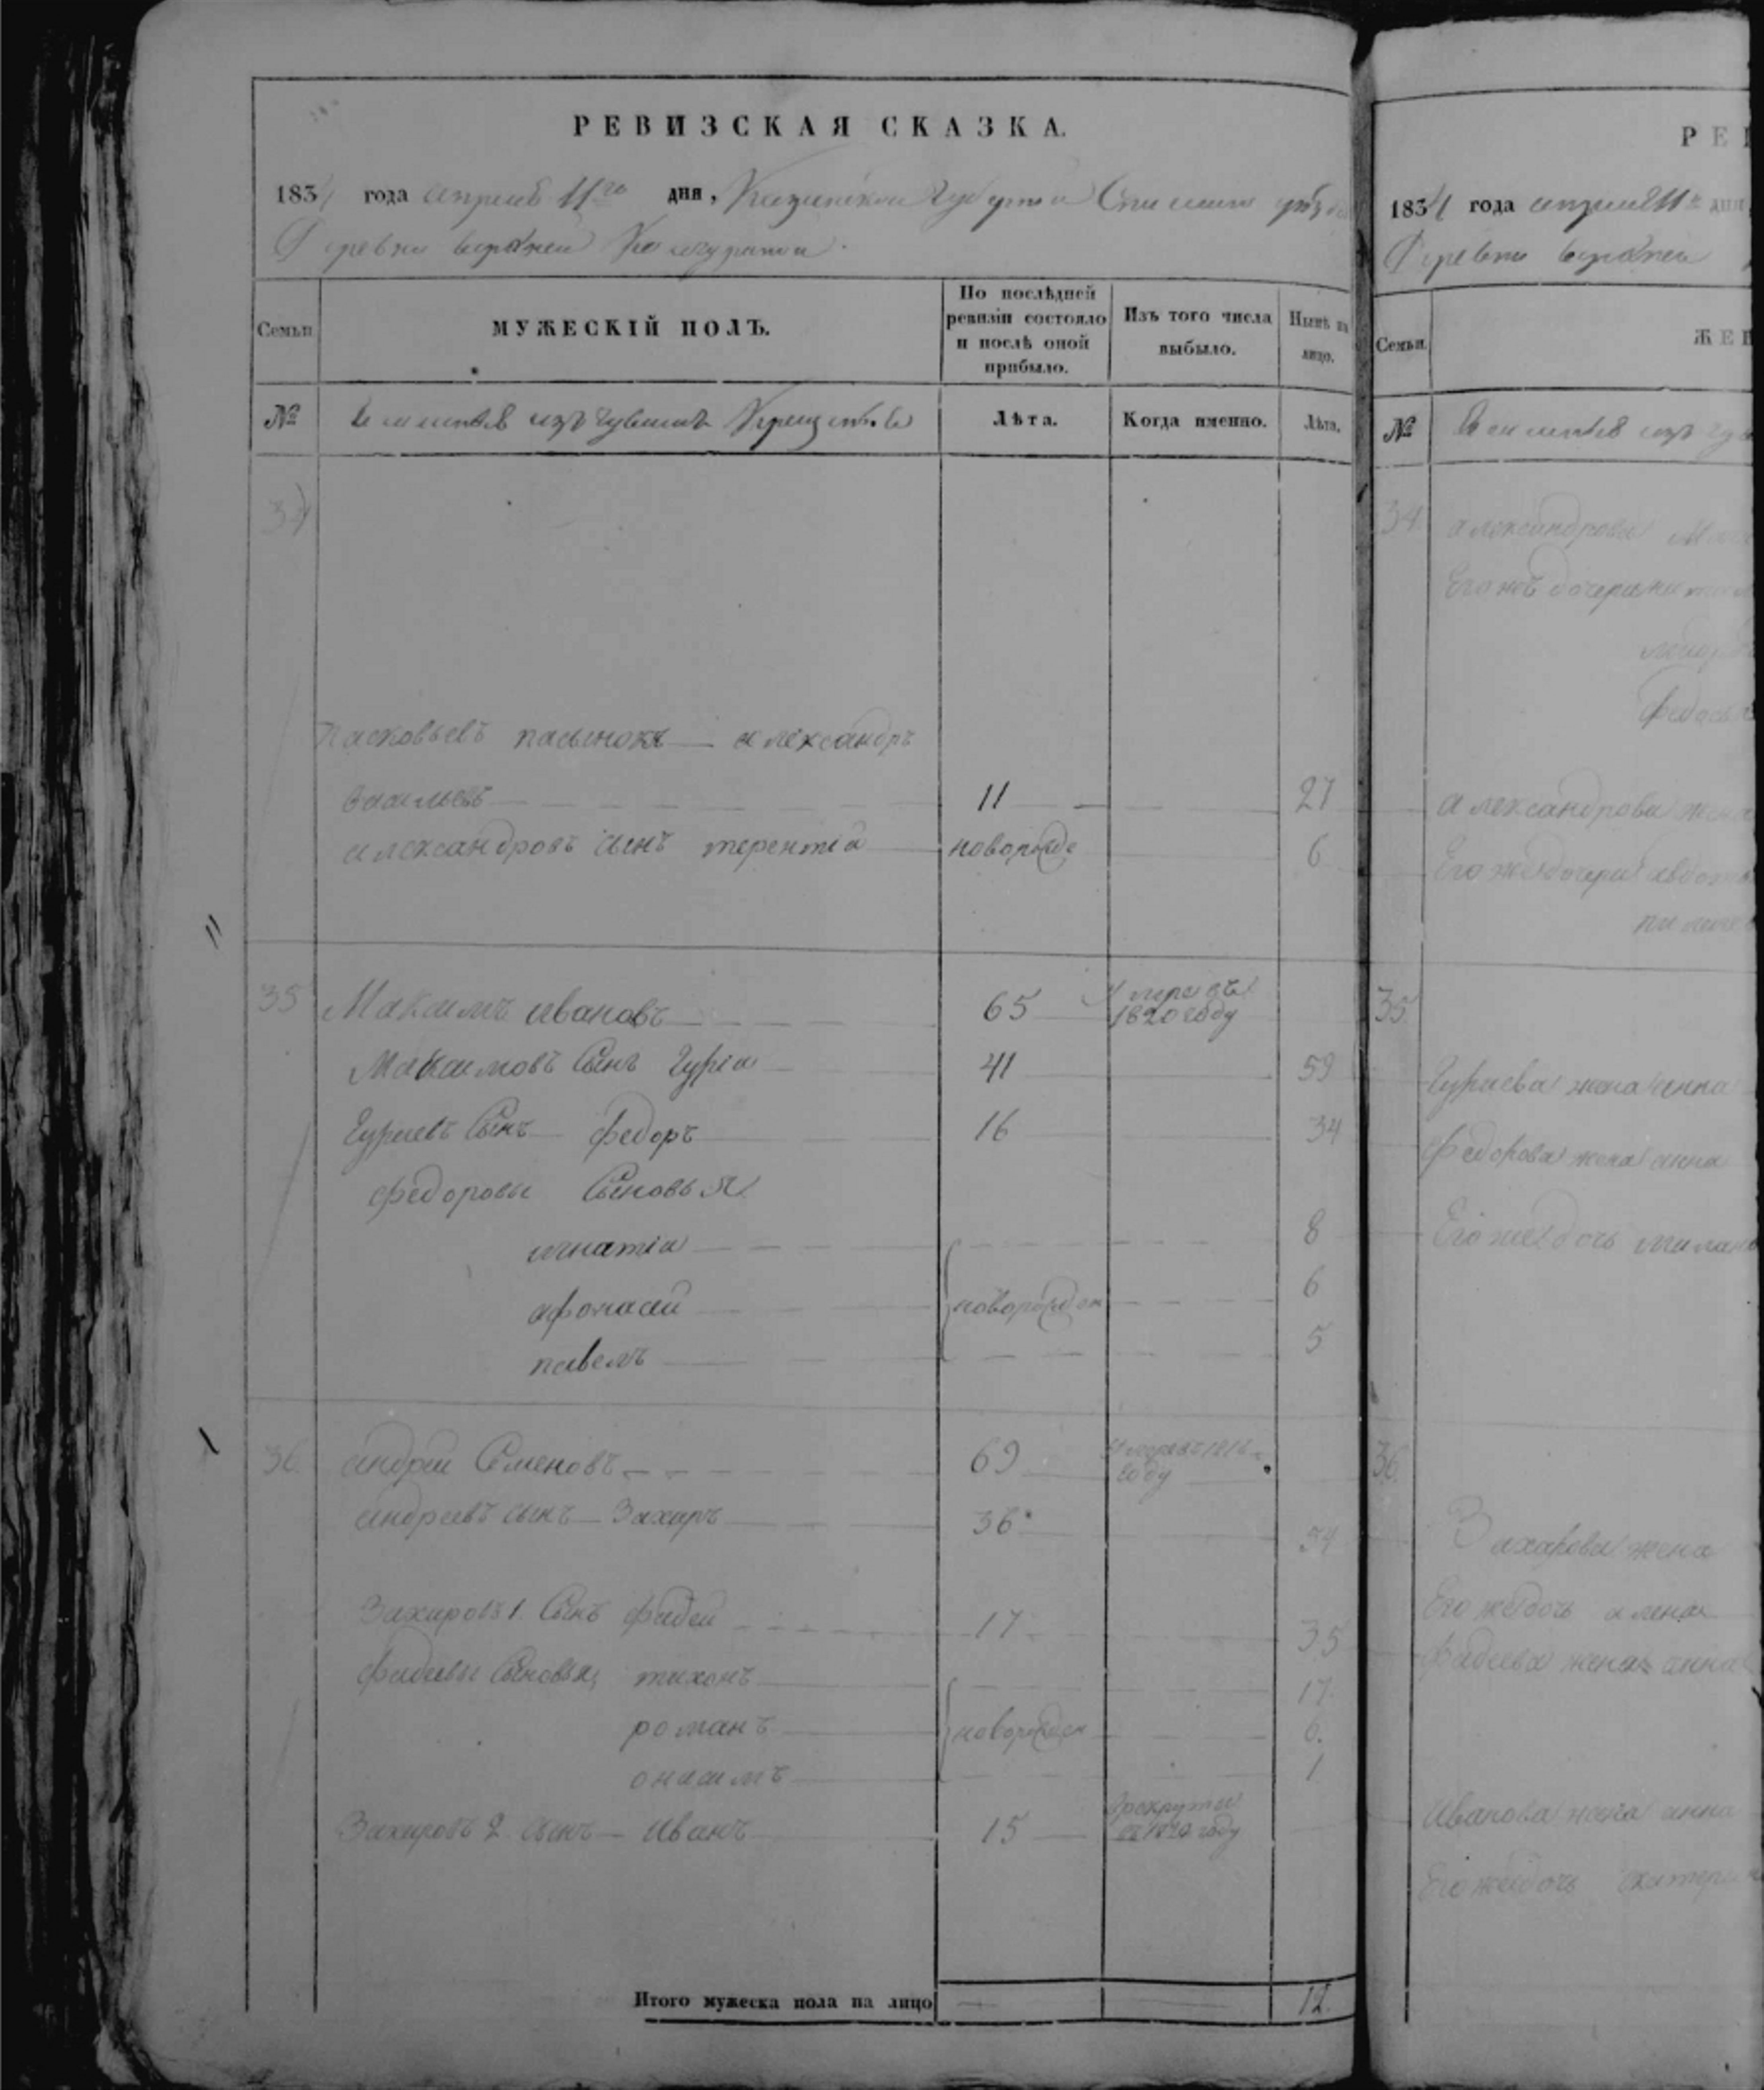 РЕВИЗСКАЯ СКАЗКА.
1834 года апреля 11го дня, Казанской Губернии уезда
Деревни верхней
Семьи
МУЖЕСКІЙ ПОЛЪ.
По послѣдней ревизіи состояло и послѣ оной прибыло.
Изъ того числа выбыло.
Нынѣ на лицо.
№
изъ чувашъ
Лѣта.
Когда именно.
Лѣта.
34
пасынокъ — александръ
васильевъ 11 27
александровъ сынъ терентiй новорожде 6
35 Максимъ ивановъ 65 умеръ въ 1820 году
Максимовъ Сынъ Гурiй 41 59
Гурьевъ Сынъ федоръ 16 34
федоровы Сыновья
игнатiй 8
афонасей новорожден 6
павелъ 5
36 андрей Семеновъ 69 году
андреевъ сынъ Захаръ 36 54
Захаровъ 1. Сынъ фадей 17 35
фадеевы Сыновья, тихонъ 17.
романъ новорожден 6.
онисимъ 1
Захаровъ 2. сынъ — иванъ 15 году
Итого мужеска пола на лицо 12.
РЕ
1834 года апреля 11 дня
Деревни верхней
Семьи.
ЖЕ
№
изъ
34 александрова
Его дочери
александрова жена
Его же дочери авдоть
35
Гурьева жена анна
федорова жена анна
Его же дочь
36
Захарова жена
Его же дочь алена
фадеева жена анна
иванова жена анна
Его же дочь катери